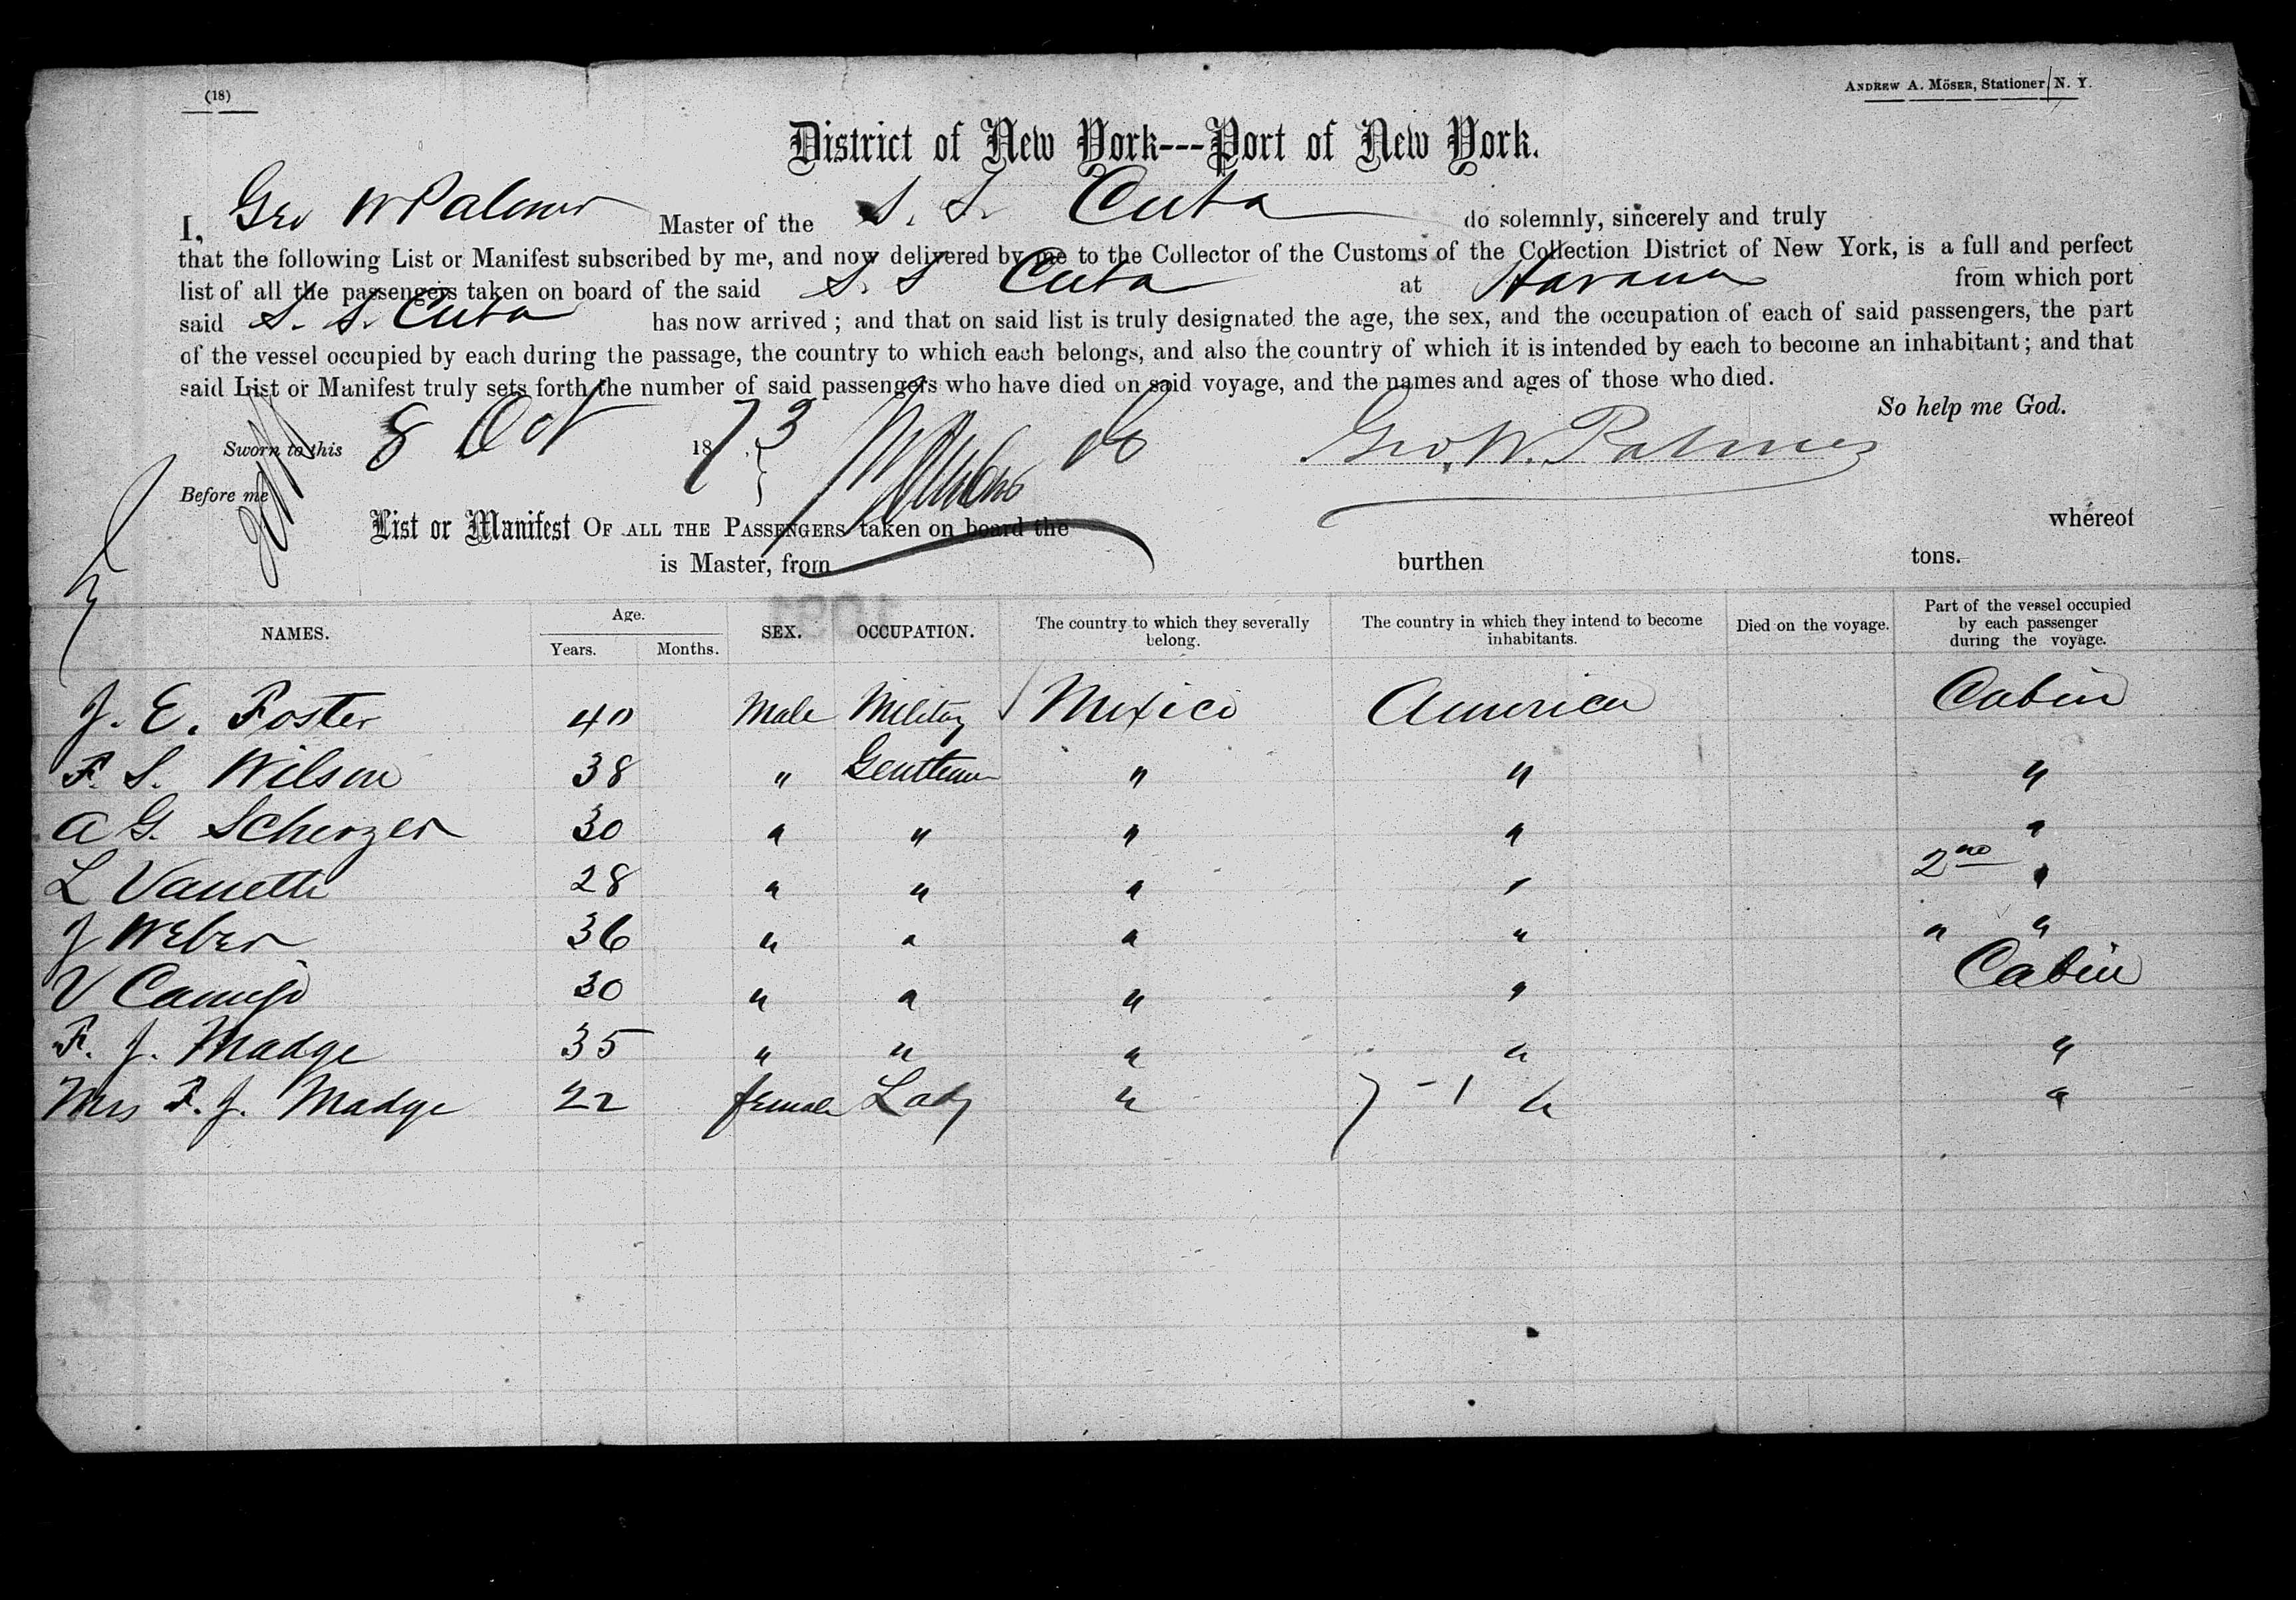 (18)
ANDREW A. MÖSER, Stationer, N. Y.
District of New York---Port of New York.
I, Geo W Palmer Master of the S. S. Cuba do solemnly, sincerely and truly
that the following List or Manifest subscribed by me, and now delivered by me to the Collector of the Customs of the Collection District of New York, is a full and perfect
list of all the passengers taken on board of the said S. S Cuba at Havana from which port
said S. S. Cuba has now arrived; and that on said list is truly designated the age, the sex, and the occupation of each of said passengers, the part
of the vessel occupied by each during the passage, the country to which each belongs, and also the country of which it is intended by each to become an inhabitant; and that
said List or Manifest truly sets forth the number of said passengers who have died on said voyage, and the names and ages of those who died.
So help me God.
Sworn to this 8 Oct 1873 Geo. W. Palmer
Before me
List or Manifest OF ALL THE PASSENGERS taken on board the whereof
is Master, from burthen tons.
NAMES. Age. Years. Months. SEX. OCCUPATION. The country to which they severally belong. The country in which they intend to become inhabitants. Died on the voyage. Part of the vessel occupied by each passenger during the voyage.
J. E. Foster 40 Male Military Mexico America Cabin
F. S. Wilson 38 " Gentleman " " "
A G. Scherzer 30 " " " " "
L Vanetti 28 " " " " 2nd "
J Weber 36 " " " " " "
V 30 " " " " Cabin
F. J. Madge 35 " " " " "
Mrs F. J. Madge 22 female Lady " " "